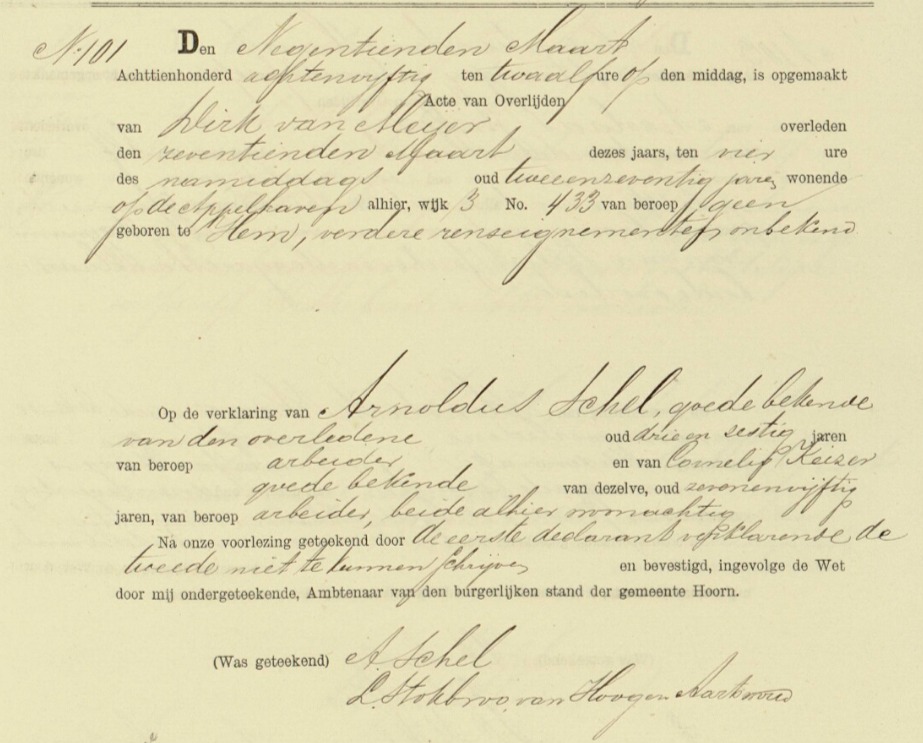 No. 101 Den Negentienden Maart
Achttienhonderd achtenvijftig ten twaalf ure op den middag, is opgemaakt
Acte van Overlijden
van Dirk van Meijer overleden
den zeventienden Maart dezes jaars, ten vier ure
des namiddags oud tweeenzeventig jaren wonende
op de Appelhaven alhier, wijk 3 No. 433 van beroep geen
geboren te Hem, verdere renseignementen onbekend
Op de verklaring van Arnoldus Schel, goede bekende
van den overledene oud drie en zestig jaren
van beroep arbeider en van Cornelis Keizer
goede bekende van dezelve, oud zevenenvijftig
jaren, van beroep arbeider, beide alhier woonachtig
Na onze voorlezing geteekend door de eerste declarant verklarende de
tweede niet te kunnen schrijven en bevestigd, ingevolge de Wet
door mij ondergeteekende, Ambtenaar van den burgerlijken stand der gemeente Hoorn.
(Was geteekend) A. Schel
L. Stokbroo van Hoogen Aartswoud